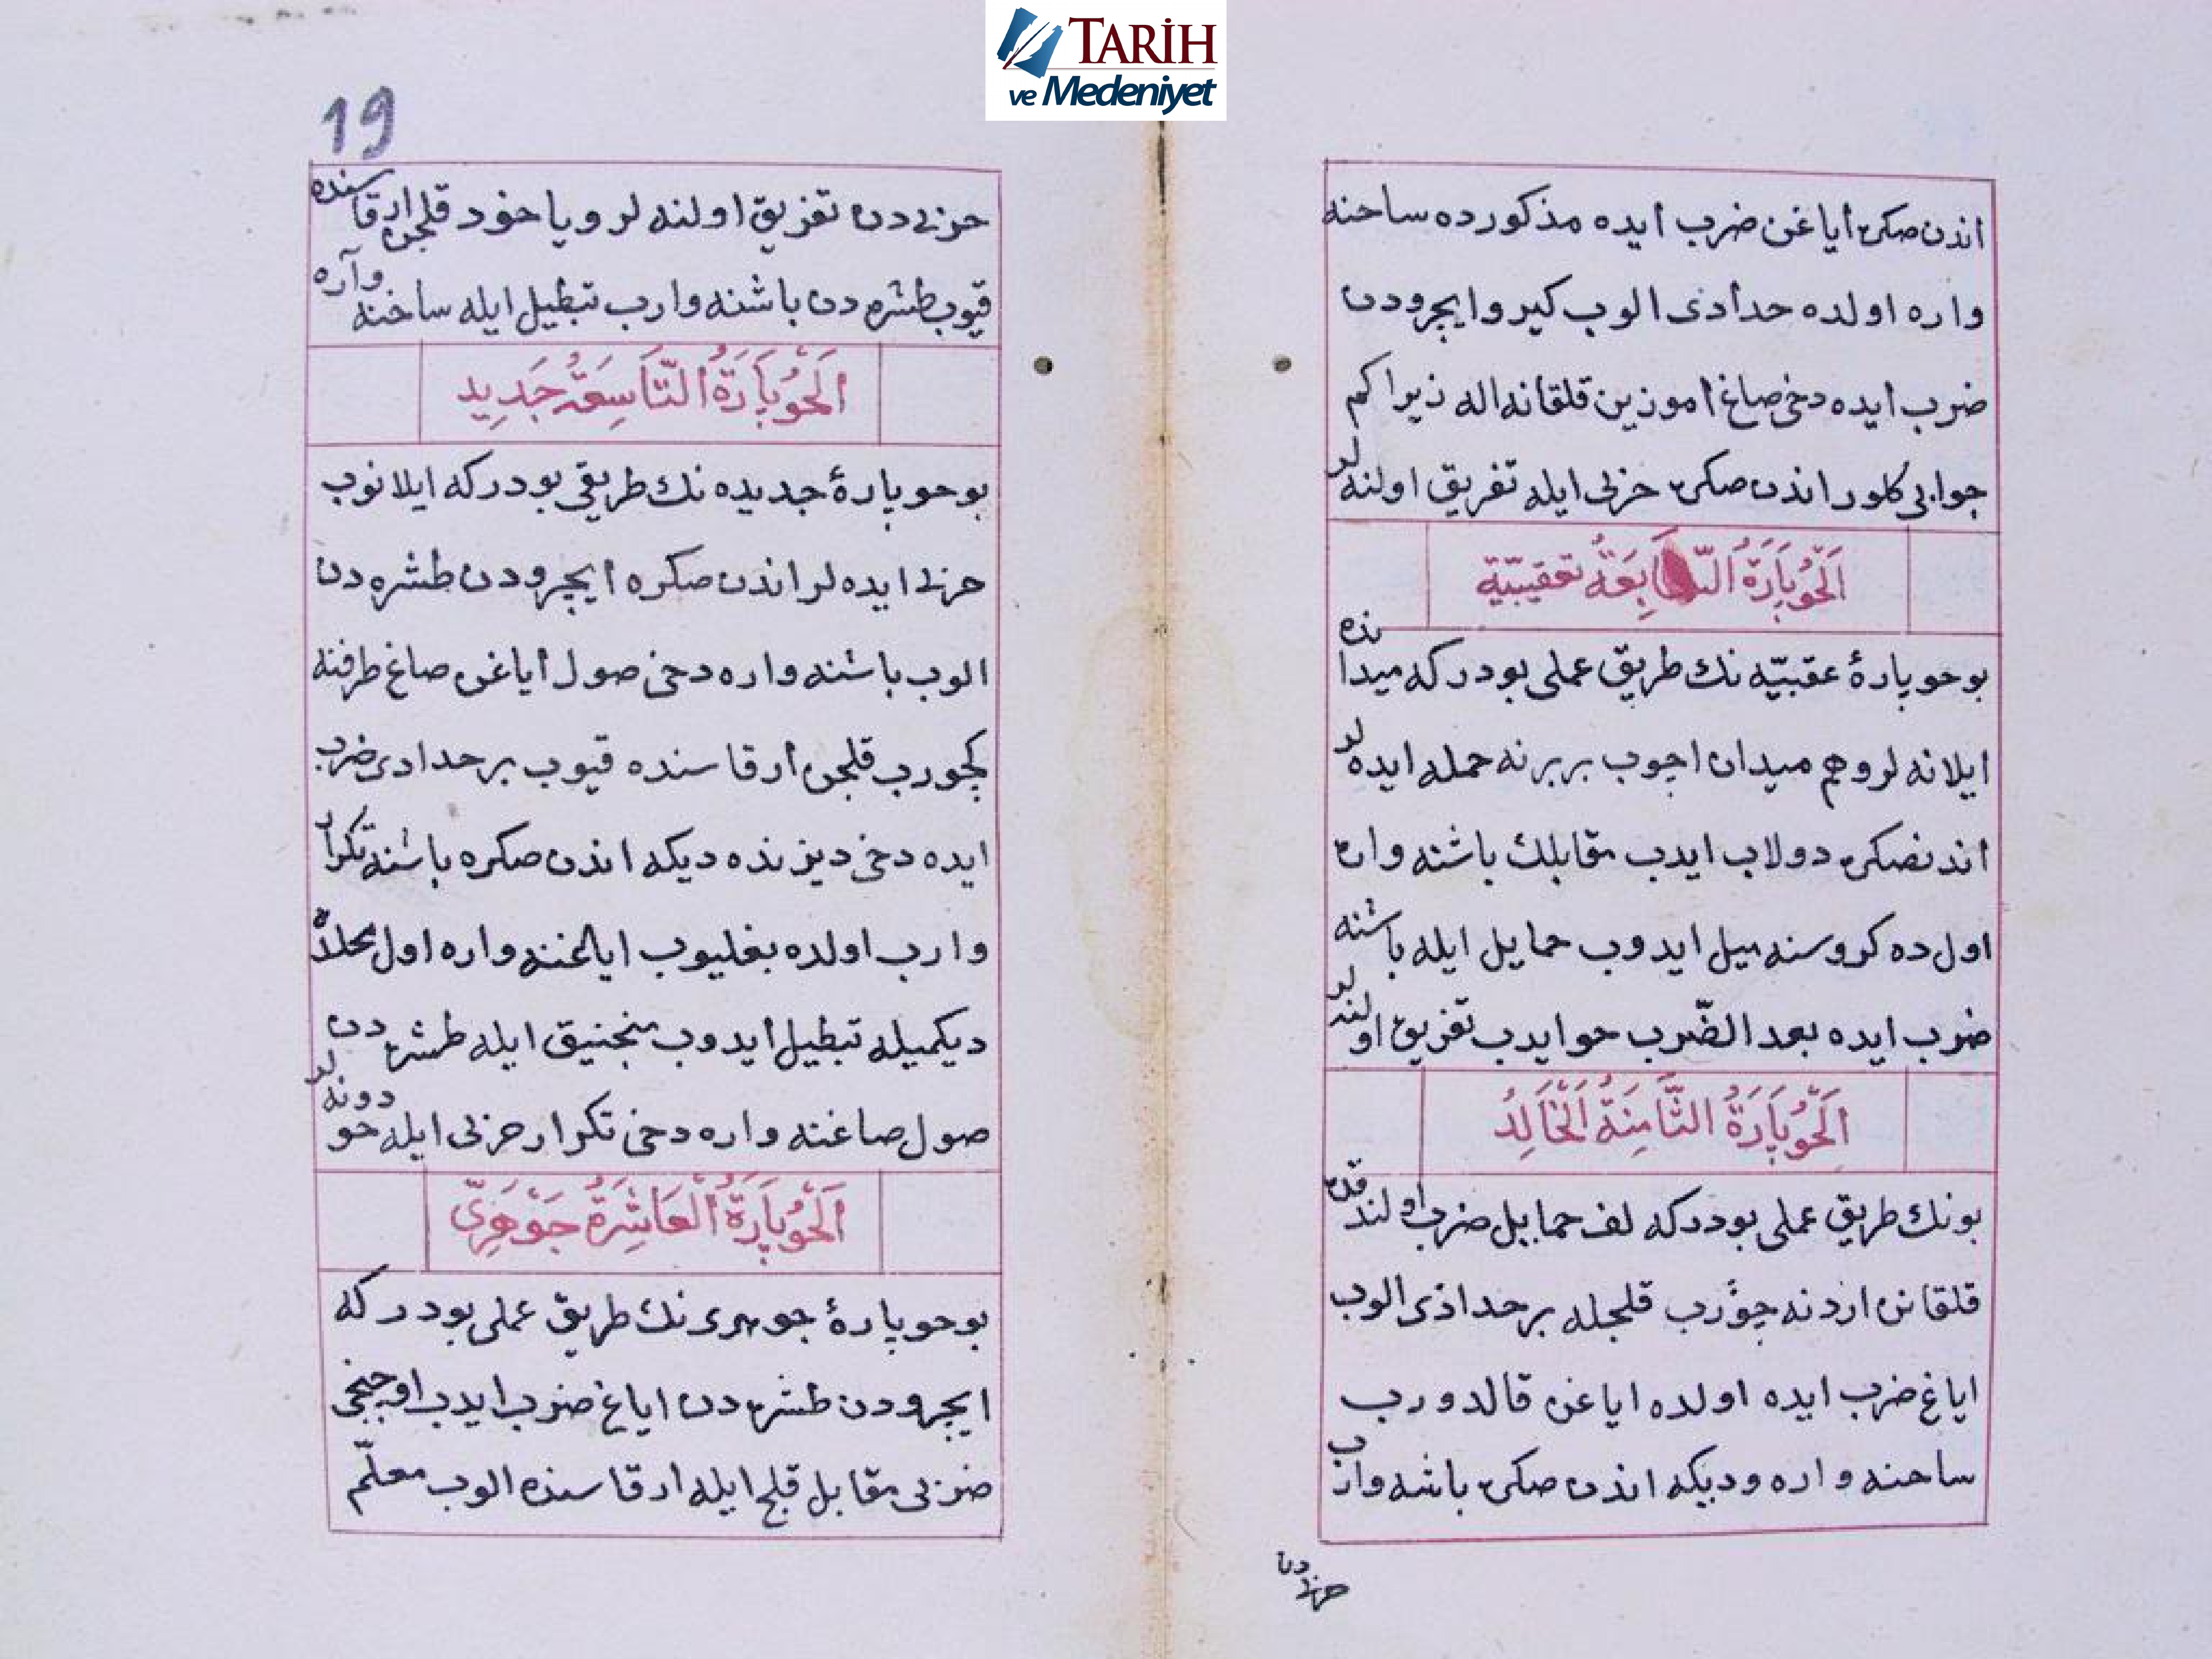 TARİH
ve Medeniyet
اندن صكره أياغن ضرب أيده مذكورده ساحنه
واره اولده حدأدى الوب كيرو ايجرودن
ضرب ايده دخى صاغ أموزين قلقانه اله زيرا كم
جوابى كلور اندن صكره حزبى ايله تفريق اولنه لر
اَلْحُوپَارَةُ السَّابِعَةُ تعقيبيّة
بو حوپارهٔ عقبيّه نك طريق عملى بودركه ميداننده
ايلانه لر وهم ميدان اچوب بر برنه حمله ايده لر
أندنصكره دولاب ايدب مقابلك باشنه واره
اول ده كروسنه ميل ايدوب حمايل ايله باشنه
ضرب ايده بعد الضّرب حو ايدب تفريق اولنه لر
اَلْحُوپَارَةُ الثَّامِنَةُ اَلْخَالِدُ
بونك طريق عملى بودركه لف حمايل ضرب اولندقده
قلقانن اردنه چوُرب قلجله بر حدادى الوب
اياغ ضرب ايده اولده اياغن قالدورب
ساحنه واره وديكه اندن صكره باشه وارب
حزبدن
19
حزبدن تفريق اولنه لر ويا خود قلجن ارقاسنده
قيوب طشره دن باشنه وارب تبطيل ايله ساخنه وآره
اَلْحُوپَارَةُ التَّاسِعَةُ جَدِيد
بو حوپارهٔ جديده نك طريقى بودركه ايلانوب
حزبى ايده لر اندن صكره أيچرودن طشره دن
الوب باشنه واره دخى صول أياغى صاغ طرفنه
كچورب قلجن أرقاسنده قيوب بر حدادى ضرب
ايده دخى ديزنده ديكه اندن صكره باشنه تكرار
وارب اولده بغليوب اياغنه واره اول محلده
ديكميله تبطيل أيدوب منجنيق ايله طشره دن
صول صاغنه واره دخى تكرار حزبى ايله حو دونه لر
اَلْحُوپَارَةُ الْعَاشِرَةُ جَوْهَرِىّ
بو حوپارهٔ جوهرى نك طريق عملى بودركه
ايچرودن طشره دن اياغ ضرب ايدب اوچنجى
ضربى مقابل قلج ايله ارقاسنده الوب معلّم